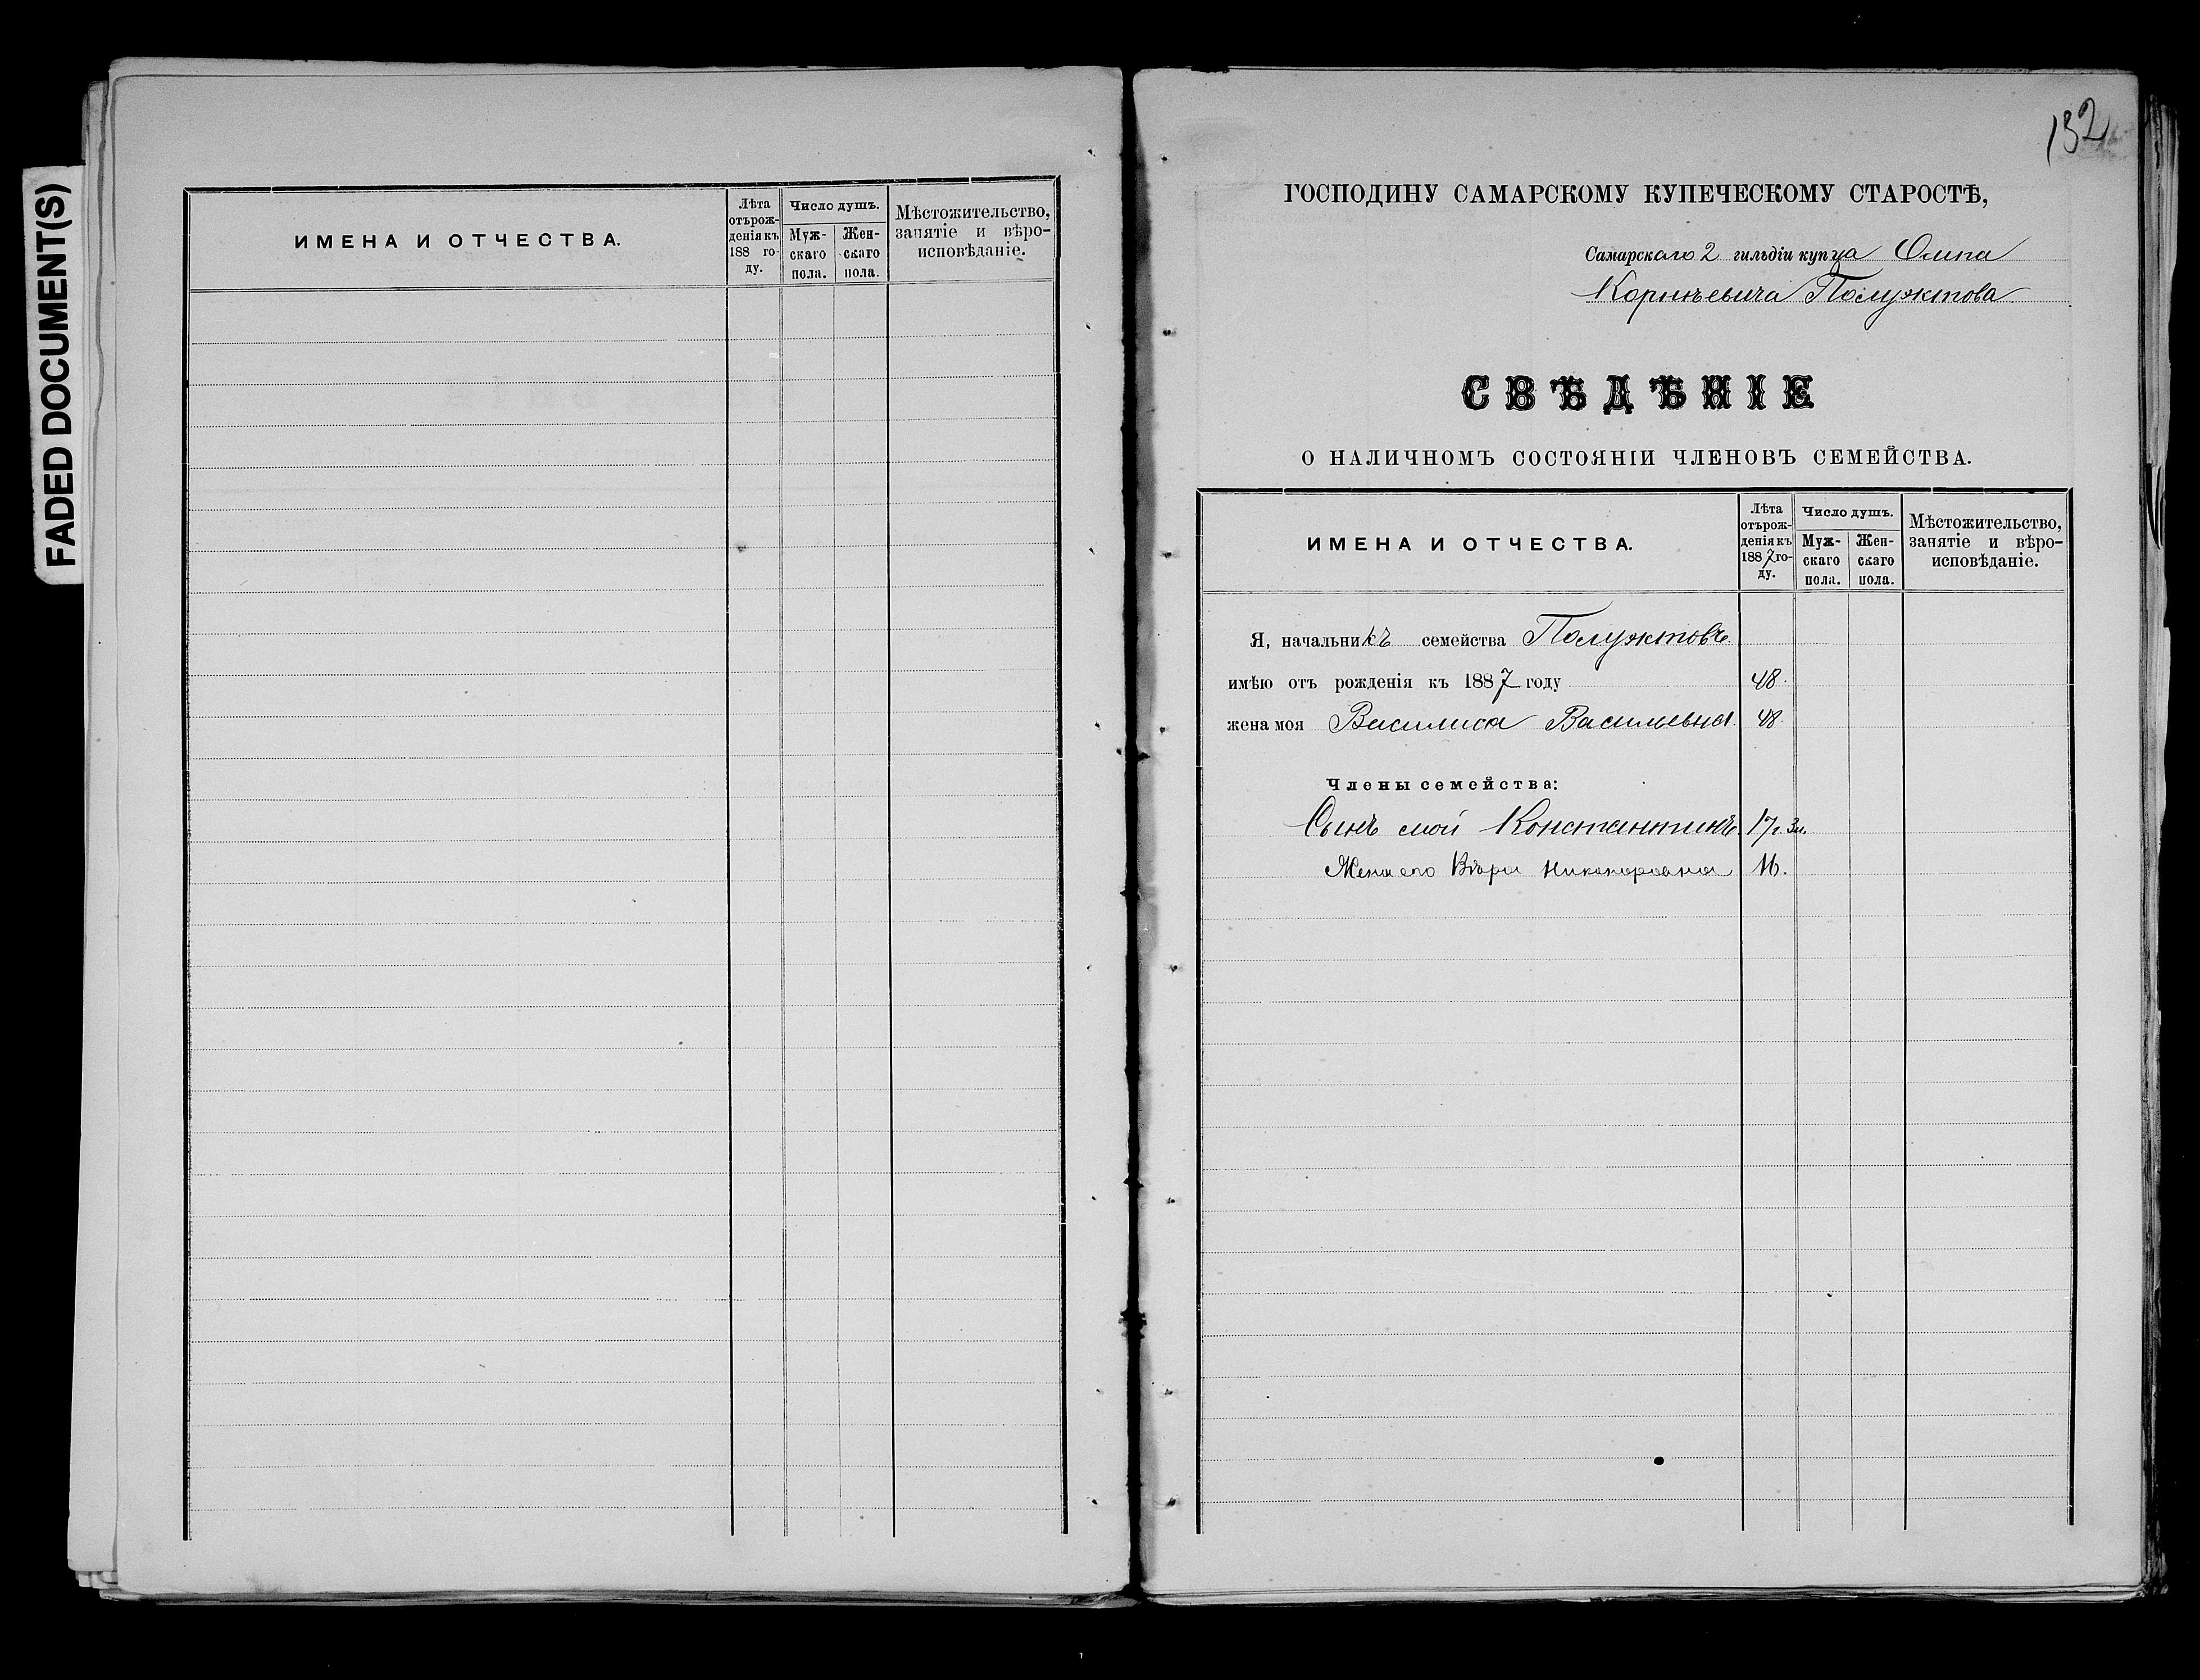 FADED DOCUMENT(S)
ИМЕНА И ОТЧЕСТВА.
Лѣта отърожденія къ 188 году.
Число душъ.
Мужскаго пола.
Женскаго пола.
Мѣстожительство, занятіе и вѣроисповѣданіе.
132
ГОСПОДИНУ САМАРСКОМУ КУПЕЧЕСКОМУ СТАРОСТѢ,
Самарскаго 2 гильдіи купца Осипа
Корнѣевича Полужктова
СВѢДѢНІЕ
О НАЛИЧНОМЪ СОСТОЯНІИ ЧЛЕНОВЪ СЕМЕЙСТВА.
ИМЕНА И ОТЧЕСТВА.
Лѣта отърожденія къ 1887 году.
Число душъ.
Мужскаго пола.
Женскаго пола.
Мѣстожительство, занятіе и вѣроисповѣданіе.
Я, начальникъ семейства Полужктовъ
имѣю отъ рожденія къ 1887 году 48.
жена моя Василиса Васильевна 48.
Члены семейства:
Сынъ мой Константинъ 17 г. 3 м.
Жена его Вѣра Никоноровна 16.